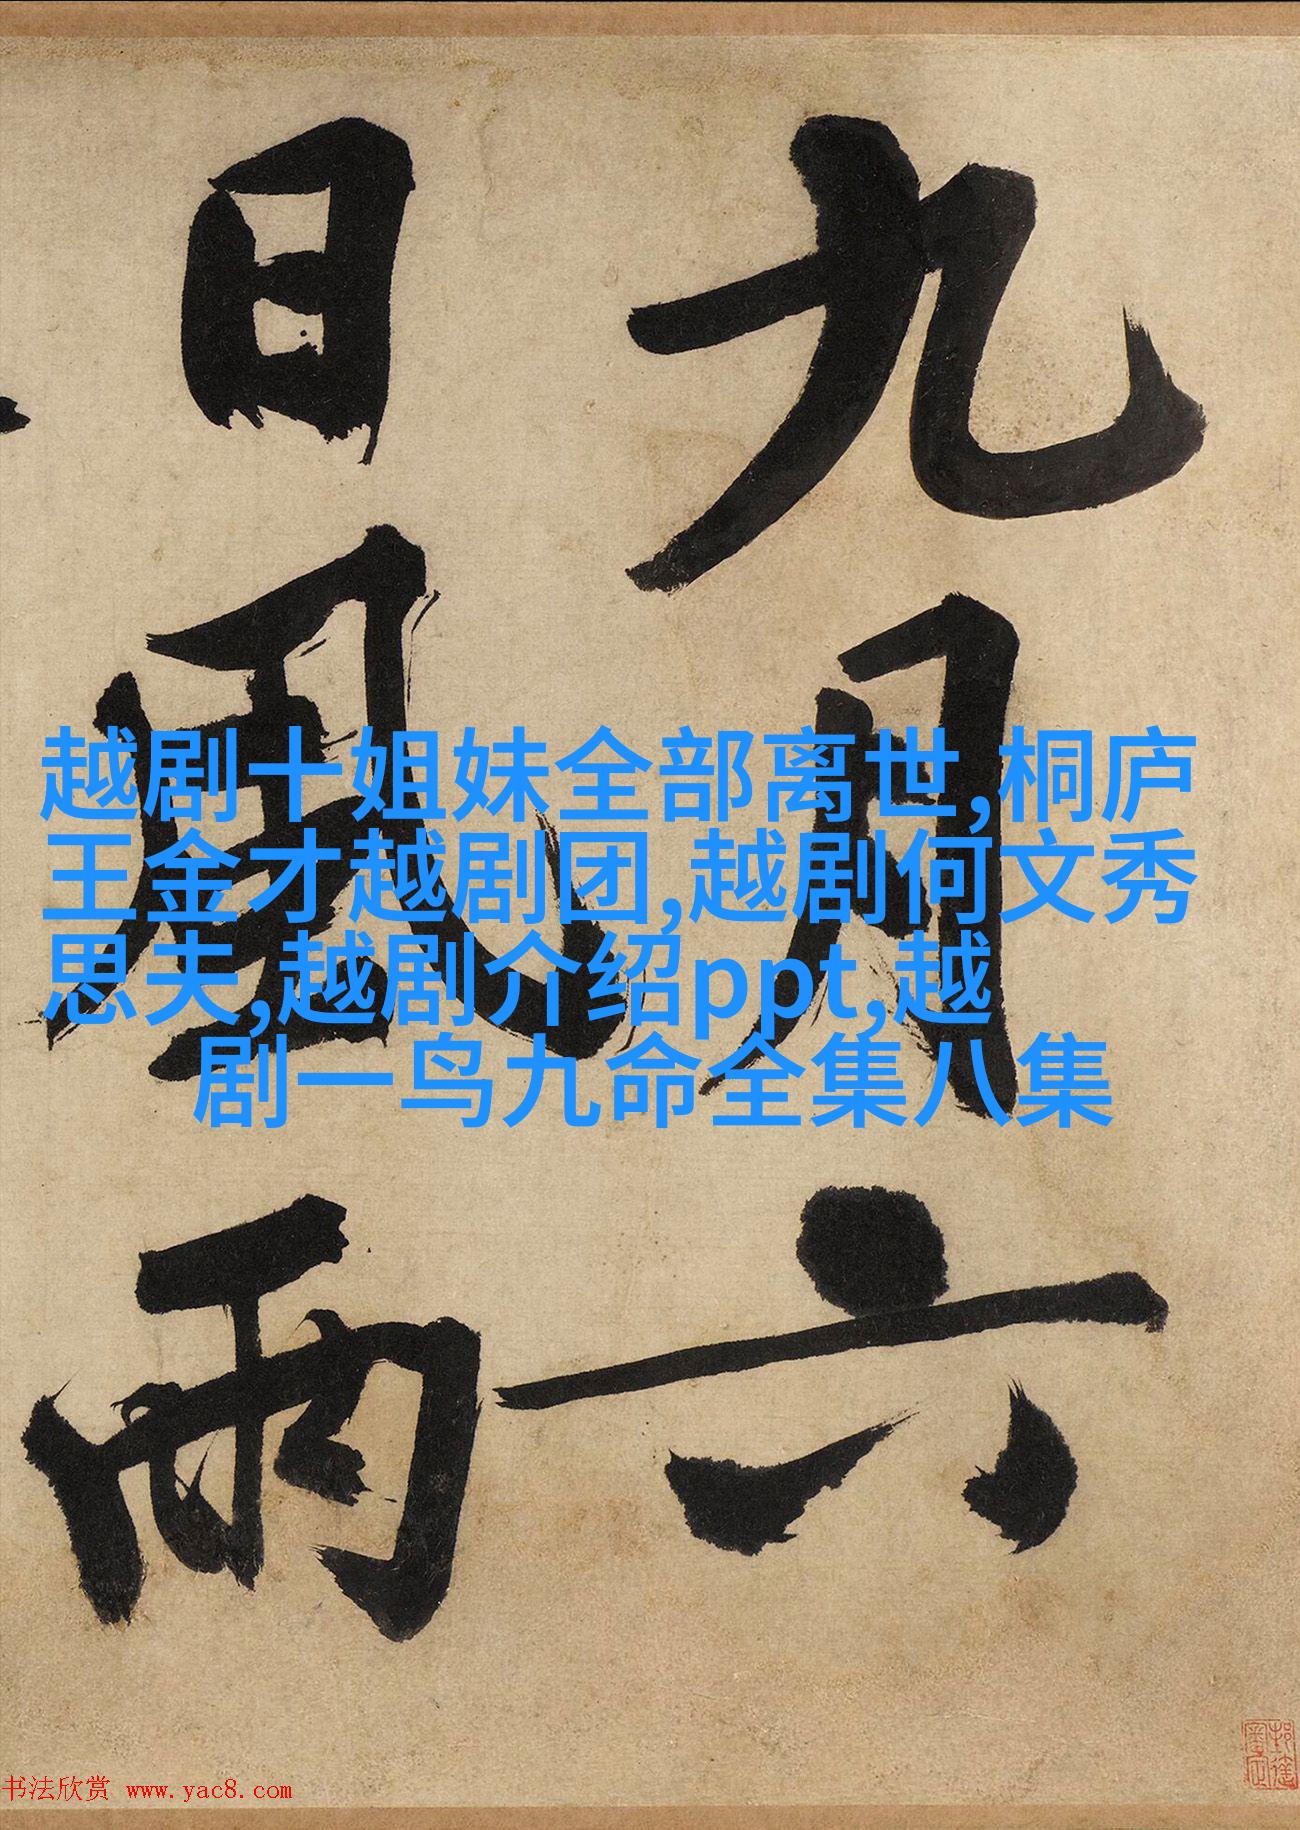 九月六
日風雨
越剧十姐妹全部离世,桐庐
王金才越剧团,越剧何文秀
思夫,越剧介绍ppt,越
剧一鸟九命全集八集
书法欣赏 www.yac8.com